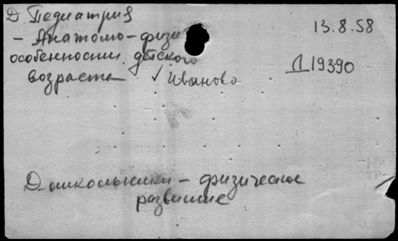 Д Педиатрия
13.8.58
- Анатомо-физи
особенности детского
возраста ✓ Иваново
Д19390
Д-школьники - физическое
развитие